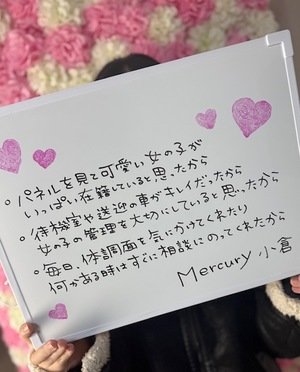 ・パネルを見て可愛い女の子が
いっぱい在籍していると思ったから
・待機室や送迎の車がキレイだったから
女の子の管理を大切にしていると思ったから
・毎日、体調面を気にかけてくれたり
何かある時はすぐに相談にのってくれたから
Mercury 小倉